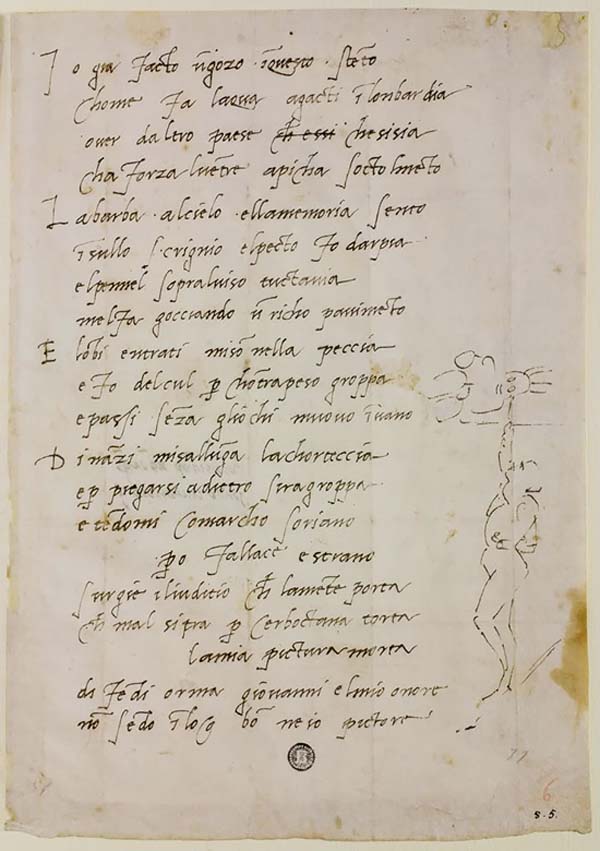 I o gia facto ūgozo īquesto stēto
chome fa laqua agacti ī lonbardia
over daltro paese ch̄ essi chesisia
cha forza lvētre apicha soctolmēto
L abarba alcielo ellamemoria sento
īsullo scrignio elpecto fo darpia
elpennel sopralviso tuctavia
melfa gocciando ū richo pavimēto
E lōbi entrati misō nella peccia
e fo delcul p̱ chōtrapeso groppa
epassi sēza gliochi muovo īvano
D ināzi misallūga lachorteccia
ep̱ piegarsi adietro siragroppa
e tēdomi comarcho soriano
p̱o fallace estrano
surgie iliuditio ch̄ lamēte porta
ch̄ mal sipra p̱ cerboctana torta
lamia pictura morta
difēdi orma giovanni elmio onore
nō sēdo ī log bō neio pictore
6
s. 5.